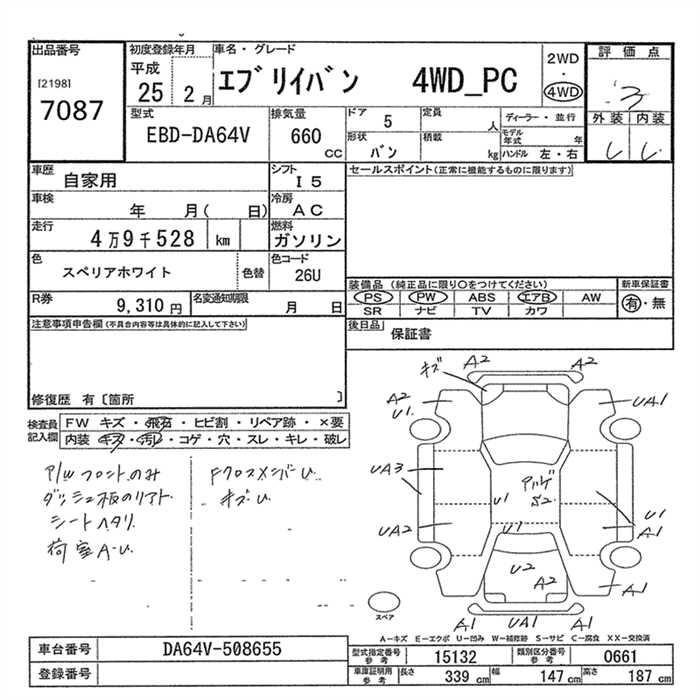 出品番号
[2198]
7087
初度登録年月
平成
25 2月
車名・グレード
エブリイバン 4WD_PC
2WD
・
4WD
評価点
3
外装 内装
型式
EBD-DA64V
排気量
660
CC
ドア
5
定員
人
形状
バン
積載
kg
ディーラー・並行
モデル年式 年
ハンドル 左・右
車歴
自家用
シフト
I5
車検
年 月( 日)
冷房
AC
走行
4万9千528 km
燃料
ガソリン
色
スペリアホワイト
色替
色コード
26U
R券
9,310円
名変通知期限
月 日
セールスポイント(正常に機能するものに限ります)
装備品 (純正品に限り○をつけてください)
PS PW ABS エアB AW
SR ナビ TV カワ
新車保証書
有・無
後日品
保証書
注意事項申告欄(不具合内容等は具体的に記入して下さい)
修復歴 有〔箇所 〕
検査員記入欄
FW キズ・飛石・ヒビ割・リペア跡・×要
内装 キズ・汚レ・コゲ・穴・スレ・キレ・破レ
P/Wフロントのみ
ダッシュ板のリアト
シートヘタリ
荷室A・U
FクロスメンバーU
キズU
キズ A2 A2
A2 U1
UA1
UA3
UA2
U1
U1
S2
U2
A2
U1
A1
A1
A1 UA1 A1
スペア
A-キズ E-エクボ U-凹み W-補修跡 S-サビ C-腐食 XX-交換済
車台番号
DA64V-508655
登録番号
型式指定番号 参考
15132
類別区分番号 参考
0661
車庫証明用 参考
長さ 339cm
幅 147cm
高さ 187cm